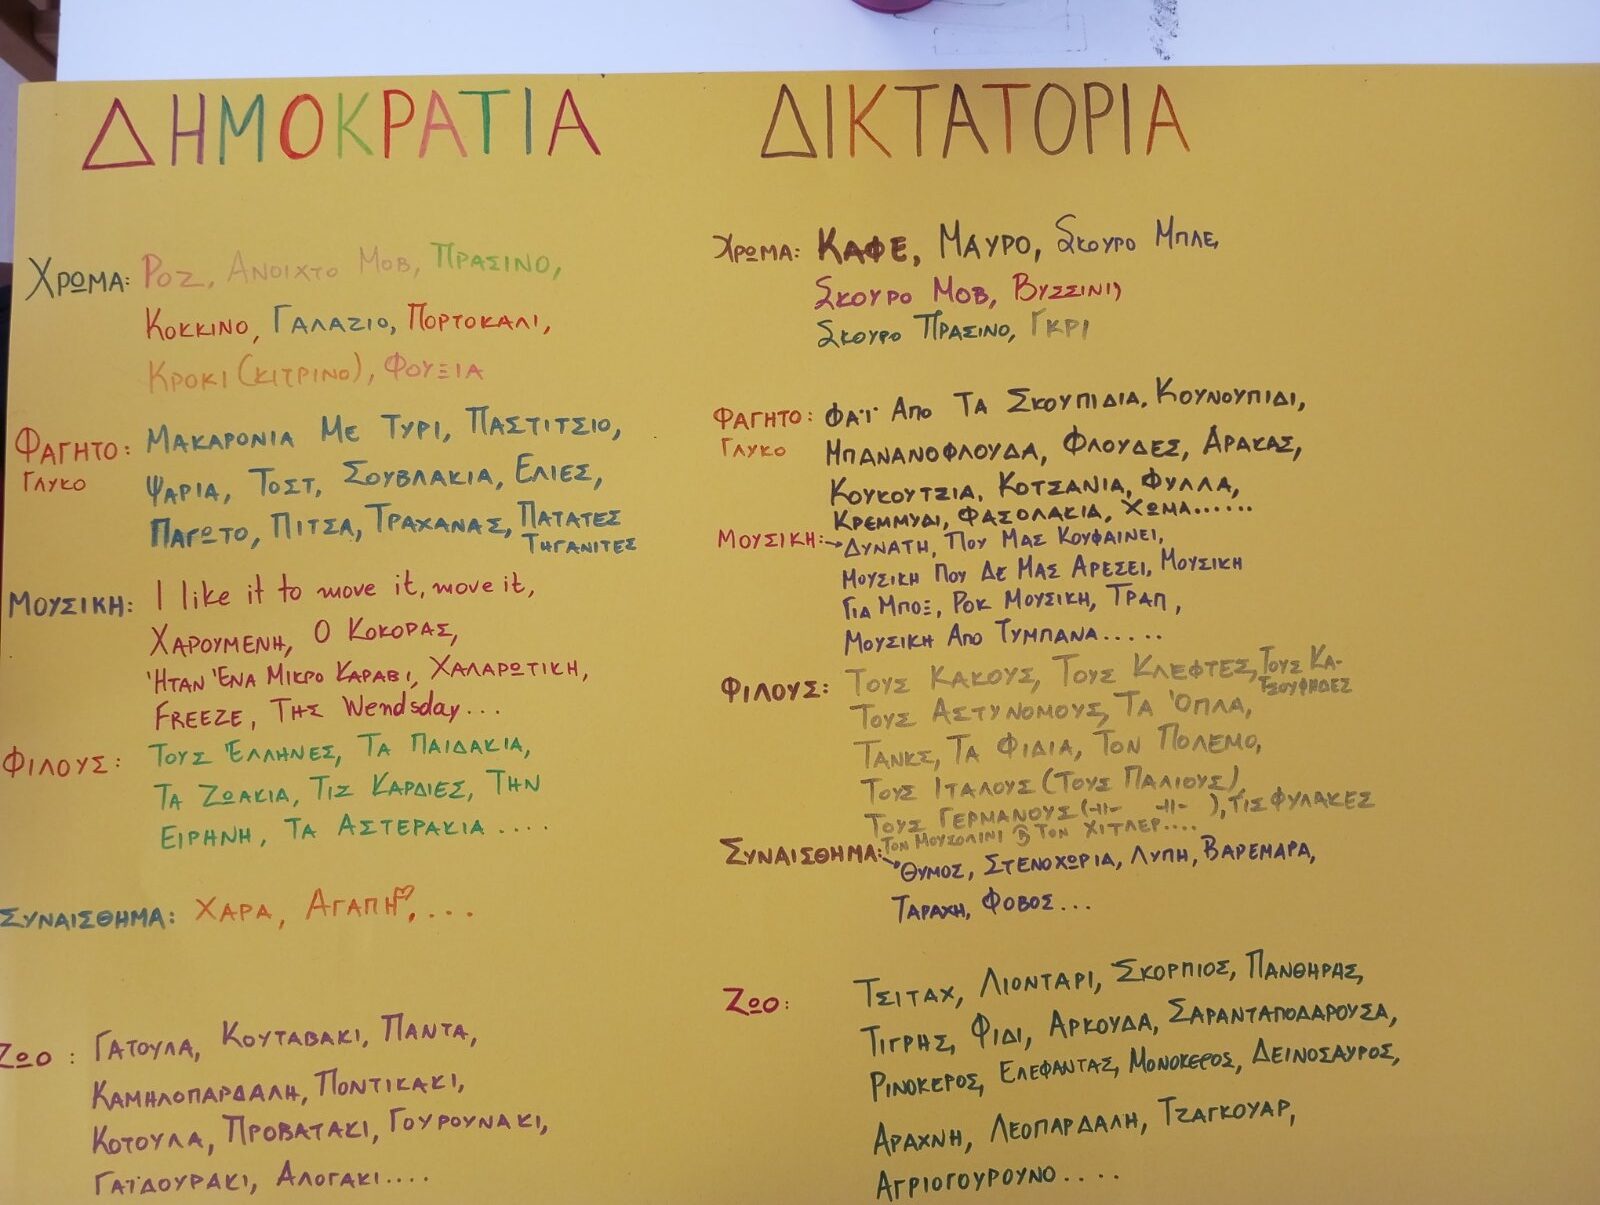 ΔΗΜΟΚΡΑΤΙΑ
ΧΡΩΜΑ: ΡΟΖ, ΑΝΟΙΧΤΟ ΜΟΒ, ΠΡΑΣΙΝΟ,
ΚΟΚΚΙΝΟ, ΓΑΛΑΖΙΟ, ΠΟΡΤΟΚΑΛΙ,
ΚΡΟΚΙ (ΚΙΤΡΙΝΟ), ΦΟΥΞΙΑ
ΦΑΓΗΤΟ: ΜΑΚΑΡΟΝΙΑ ΜΕ ΤΥΡΙ, ΠΑΣΤΙΤΣΙΟ,
ΓΛΥΚΟ ΨΑΡΙΑ, ΤΟΣΤ, ΣΟΥΒΛΑΚΙΑ, ΕΛΙΕΣ,
ΠΑΓΩΤΟ, ΠΙΤΣΑ, ΤΡΑΧΑΝΑΣ, ΠΑΤΑΤΕΣ
ΤΗΓΑΝΙΤΕΣ
ΜΟΥΣΙΚΗ: I like it to move it, move it,
ΧΑΡΟΥΜΕΝΗ, Ο ΚΟΚΟΡΑΣ,
ΉΤΑΝ ΈΝΑ ΜΙΚΡΟ ΚΑΡΑΒΙ, ΧΑΛΑΡΩΤΙΚΗ,
FREEZE, ΤΗΣ Wendsday...
ΦΙΛΟΥΣ: ΤΟΥΣ ΈΛΛΗΝΕΣ, ΤΑ ΠΑΙΔΑΚΙΑ,
ΤΑ ΖΩΑΚΙΑ, ΤΙΖ ΚΑΡΔΙΕΣ, ΤΗΝ
ΕΙΡΗΝΗ, ΤΑ ΑΣΤΕΡΑΚΙΑ ....
ΣΥΝΑΙΣΘΗΜΑ: ΧΑΡΑ, ΑΓΑΠΗ♡,...
ΖΩΟ: ΓΑΤΟΥΛΑ, ΚΟΥΤΑΒΑΚΙ, ΠΑΝΤΑ,
ΚΑΜΗΛΟΠΑΡΔΑΛΗ, ΠΟΝΤΙΚΑΚΙ,
ΚΟΤΟΥΛΑ, ΠΡΟΒΑΤΑΚΙ, ΓΟΥΡΟΥΝΑΚΙ,
ΓΑΪΔΟΥΡΑΚΙ, ΑΛΟΓΑΚΙ....
ΔΙΚΤΑΤΟΡΙΑ
ΧΡΩΜΑ: ΚΑΦΕ, ΜΑΥΡΟ, ΣΚΟΥΡΟ ΜΠΛΕ,
ΣΚΟΥΡΟ ΜΟΒ, ΒΥΣΣΙΝΙ,
ΣΚΟΥΡΟ ΠΡΑΣΙΝΟ, ΓΚΡΙ
ΦΑΓΗΤΟ: ΦΑΪ ΑΠΟ ΤΑ ΣΚΟΥΠΙΔΙΑ, ΚΟΥΝΟΥΠΙΔΙ,
ΓΛΥΚΟ ΜΠΑΝΑΝΟΦΛΟΥΔΑ, ΦΛΟΥΔΕΣ, ΑΡΑΚΑΣ,
ΚΟΥΚΟΥΤΖΙΑ, ΚΟΤΣΑΝΙΑ, ΦΥΛΛΑ,
ΚΡΕΜΜΥΔΙ, ΦΑΣΟΛΑΚΙΑ, ΧΩΜΑ......
ΜΟΥΣΙΚΗ:→ΔΥΝΑΤΗ, ΠΟΥ ΜΑΣ ΚΟΥΦΑΙΝΕΙ,
ΜΟΥΣΙΚΗ ΠΟΥ ΔΕ ΜΑΣ ΑΡΕΣΕΙ, ΜΟΥΣΙΚΗ
ΓΙΑ ΜΠΟΞ, ΡΟΚ ΜΟΥΣΙΚΗ, ΤΡΑΠ,
ΜΟΥΣΙΚΗ ΑΠΟ ΤΥΜΠΑΝΑ.....
ΦΙΛΟΥΣ: ΤΟΥΣ ΚΑΚΟΥΣ, ΤΟΥΣ ΚΛΕΦΤΕΣ, ΤΟΥΣ ΚΑ-
ΤΣΟΥΦΗΔΕΣ
ΤΟΥΣ ΑΣΤΥΝΟΜΟΥΣ, ΤΑ ΌΠΛΑ,
ΤΑΝΚΣ, ΤΑ ΦΙΔΙΑ, ΤΟΝ ΠΟΛΕΜΟ,
ΤΟΥΣ ΙΤΑΛΟΥΣ (ΤΟΥΣ ΠΑΛΙΟΥΣ),
ΤΟΥΣ ΓΕΡΜΑΝΟΥΣ (-||- -||- ), ΤΙΣ ΦΥΛΑΚΕΣ
ΤΟΝ ΜΟΥΣΟΛΙΝΙ & ΤΟΝ ΧΙΤΛΕΡ....
ΣΥΝΑΙΣΘΗΜΑ:→ΘΥΜΟΣ, ΣΤΕΝΟΧΩΡΙΑ, ΛΥΠΗ, ΒΑΡΕΜΑΡΑ,
ΤΑΡΑΧΗ, ΦΟΒΟΣ...
ΖΩΟ: ΤΣΙΤΑΧ, ΛΙΟΝΤΑΡΙ, ΣΚΟΡΠΙΟΣ, ΠΑΝΘΗΡΑΣ,
ΤΙΓΡΗΣ, ΦΙΔΙ, ΑΡΚΟΥΔΑ, ΣΑΡΑΝΤΑΠΟΔΑΡΟΥΣΑ,
ΡΙΝΟΚΕΡΟΣ, ΕΛΕΦΑΝΤΑΣ, ΜΟΝΟΚΕΡΟΣ, ΔΕΙΝΟΣΑΥΡΟΣ,
ΑΡΑΧΝΗ, ΛΕΟΠΑΡΔΑΛΗ, ΤΖΑΓΚΟΥΑΡ,
ΑΓΡΙΟΓΟΥΡΟΥΝΟ....